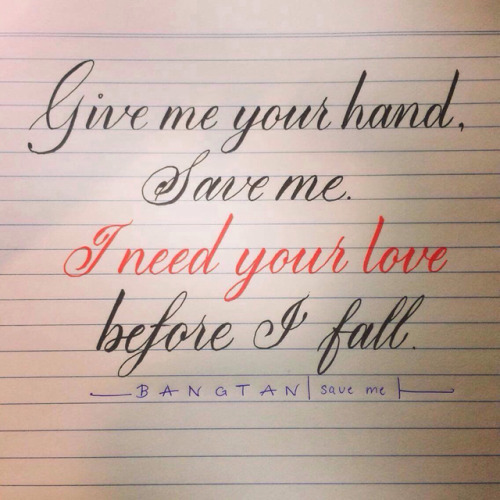 Give me your hand,
Save me.
I need your love
before I fall.
BANGTAN | save me |